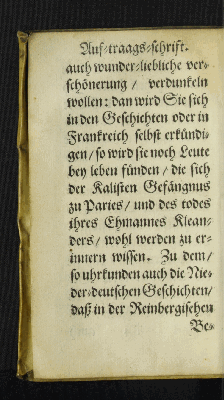 Auf-traags-schrift.
auch wunder-liebliche ver-
schönerung / verdunkeln
wollen: dan wird Sie sich
in den Geschichten oder in
Frankreich selbst erkündi-
gen / so wird sie noch Leute
bey leben fünden / die sich
der Kalisten Gefängnus
zu Paries / und des todes
ihres Ehmannes Klean-
ders / wohl werden zu er-
innern wissen. Zu dem /
so uhrkunden auch die Nie-
der-deutschen Geschichten /
daß in der Reinbergischen
Be-